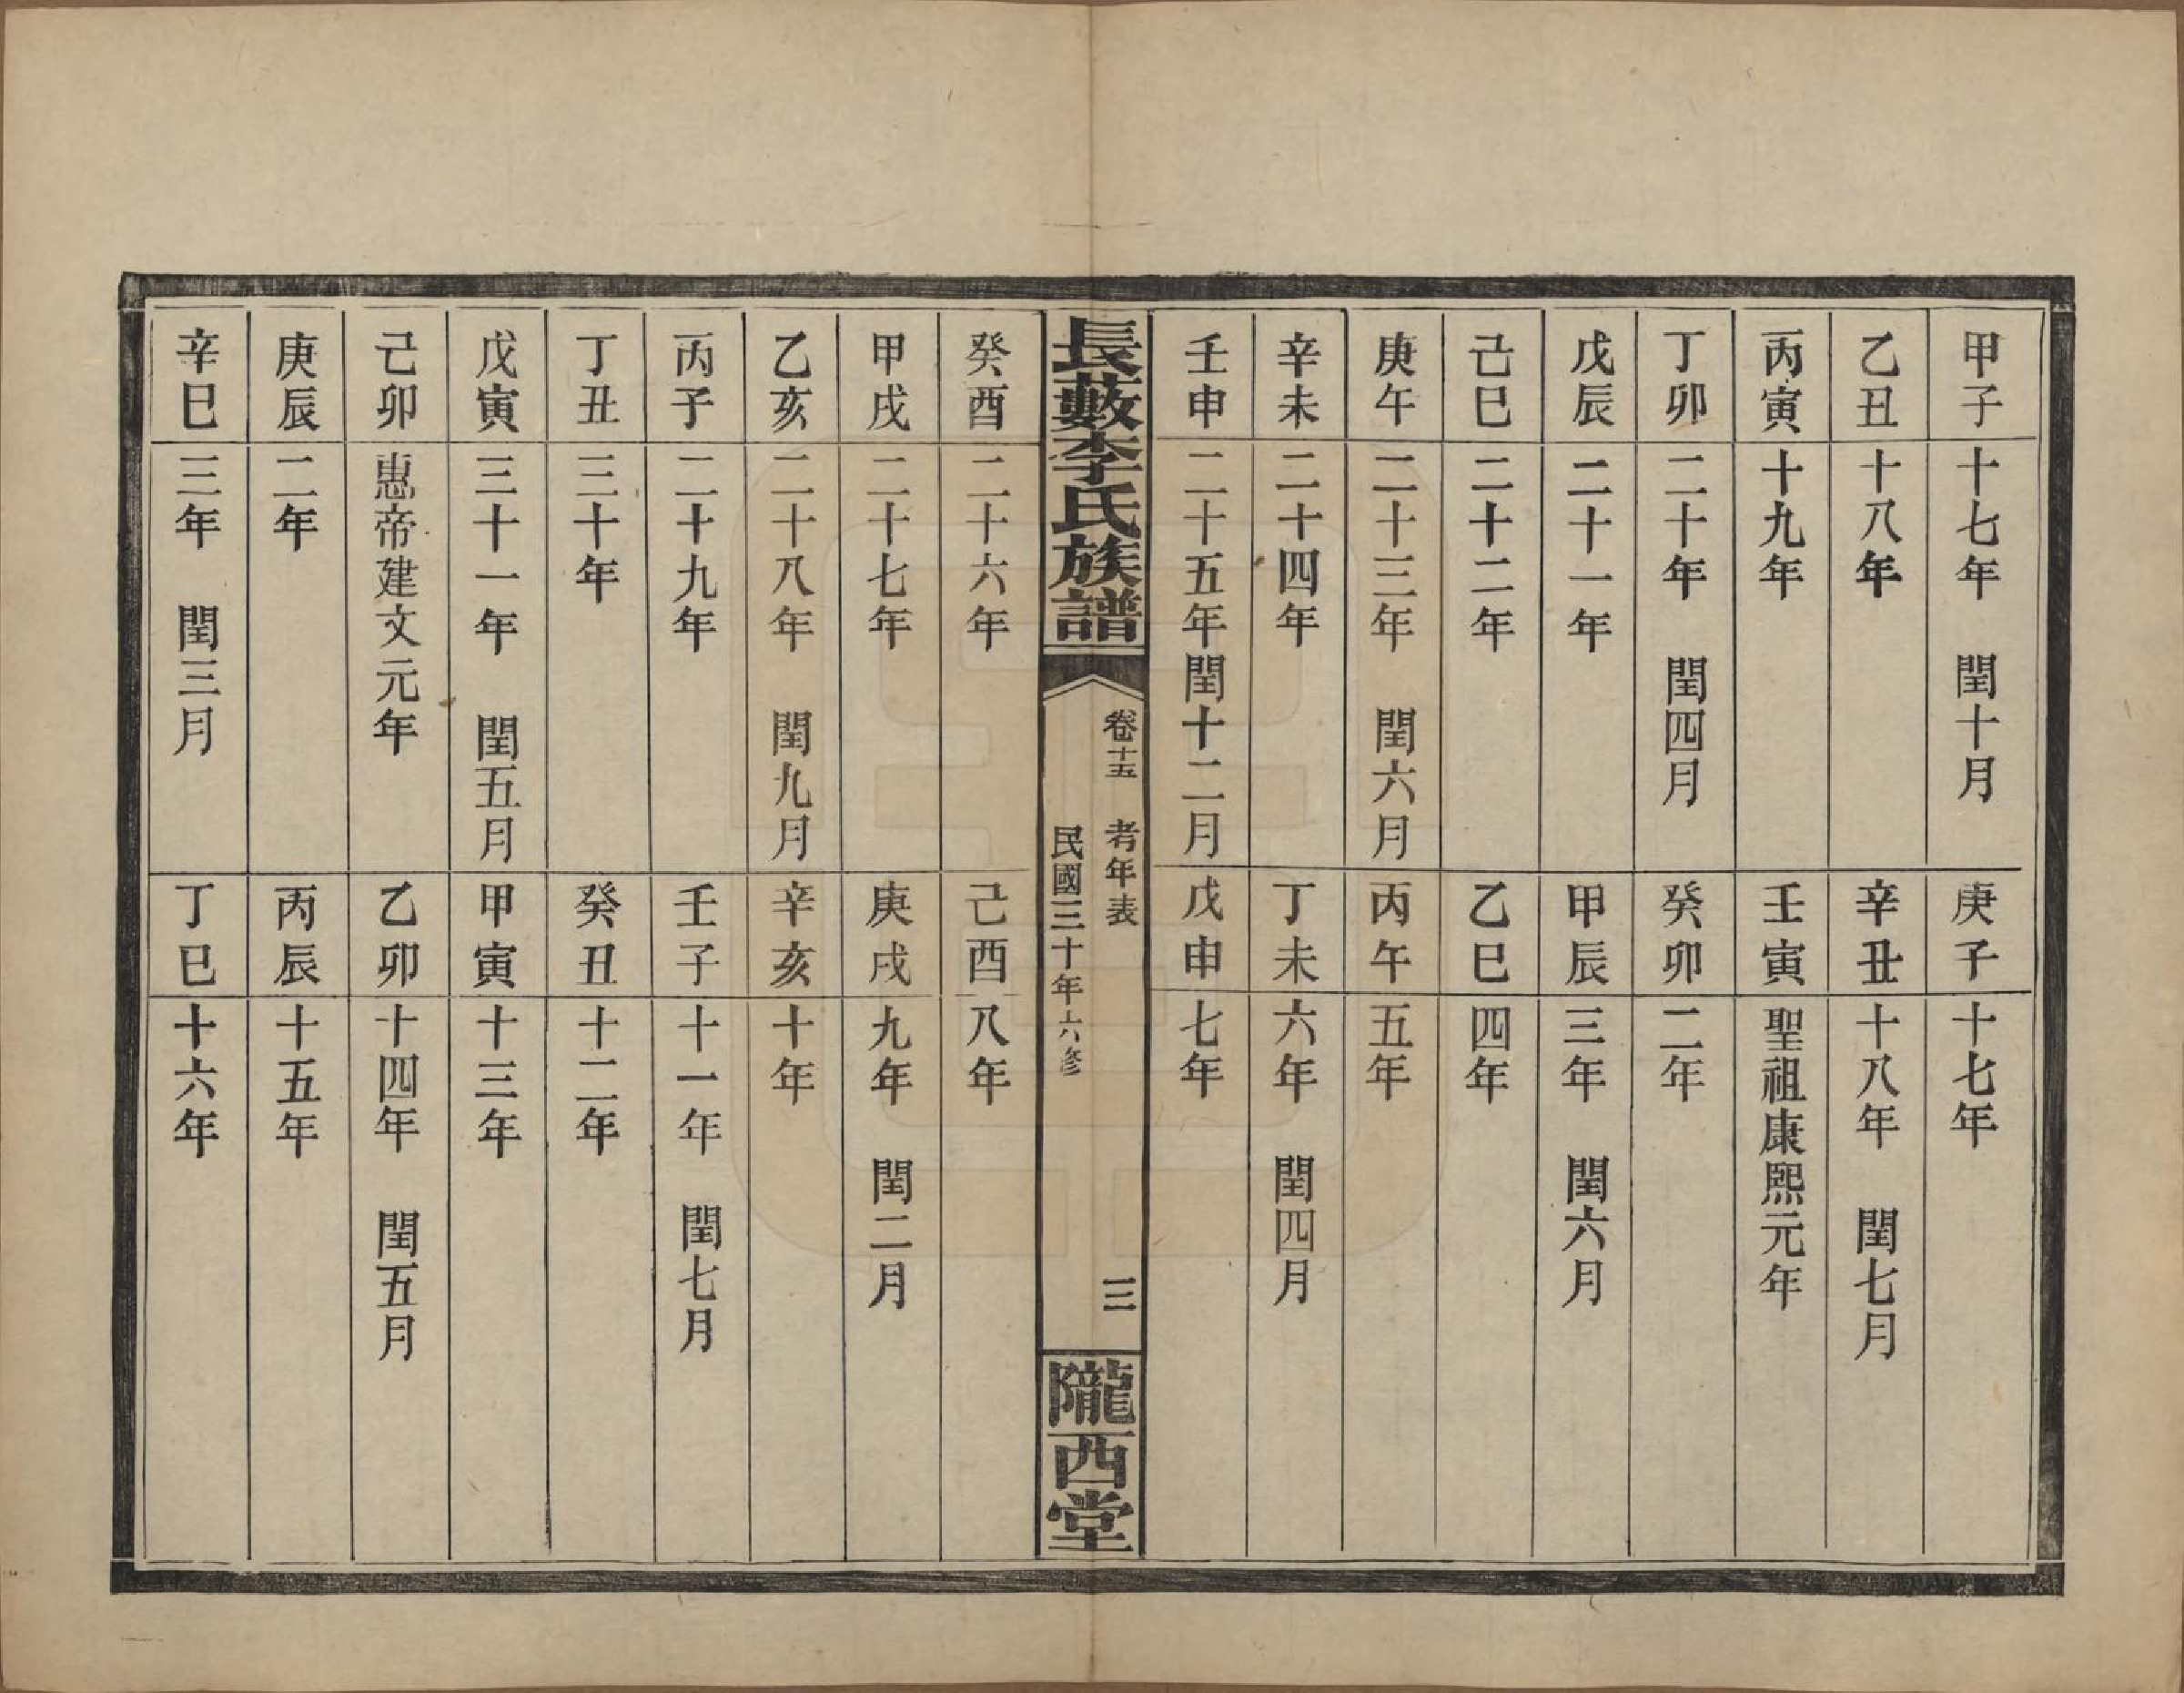 甲子 十七年 閏十月 庚子 十七年
乙丑 十八年 辛丑 十八年 閏七月
丙寅 十九年 壬寅 聖祖康熙元年
丁卯 二十年 閏四月 癸卯 二年
戊辰 二十一年 甲辰 三年 閏六月
己巳 二十二年 乙巳 四年
庚午 二十三年 閏六月 丙午 五年
辛未 二十四年 丁未 六年 閏四月
壬申 二十五年 閏十二月 戊申 七年
長藪李氏族譜
卷十五 考年表 三
民國三十年六修
隴西堂
癸酉 二十六年 己酉 八年
甲戌 二十七年 庚戌 九年 閏二月
乙亥 二十八年 閏九月 辛亥 十年
丙子 二十九年 壬子 十一年 閏七月
丁丑 三十年 癸丑 十二年
戊寅 三十一年 閏五月 甲寅 十三年
己卯 惠帝建文元年 乙卯 十四年 閏五月
庚辰 二年 丙辰 十五年
辛巳 三年 閏三月 丁巳 十六年